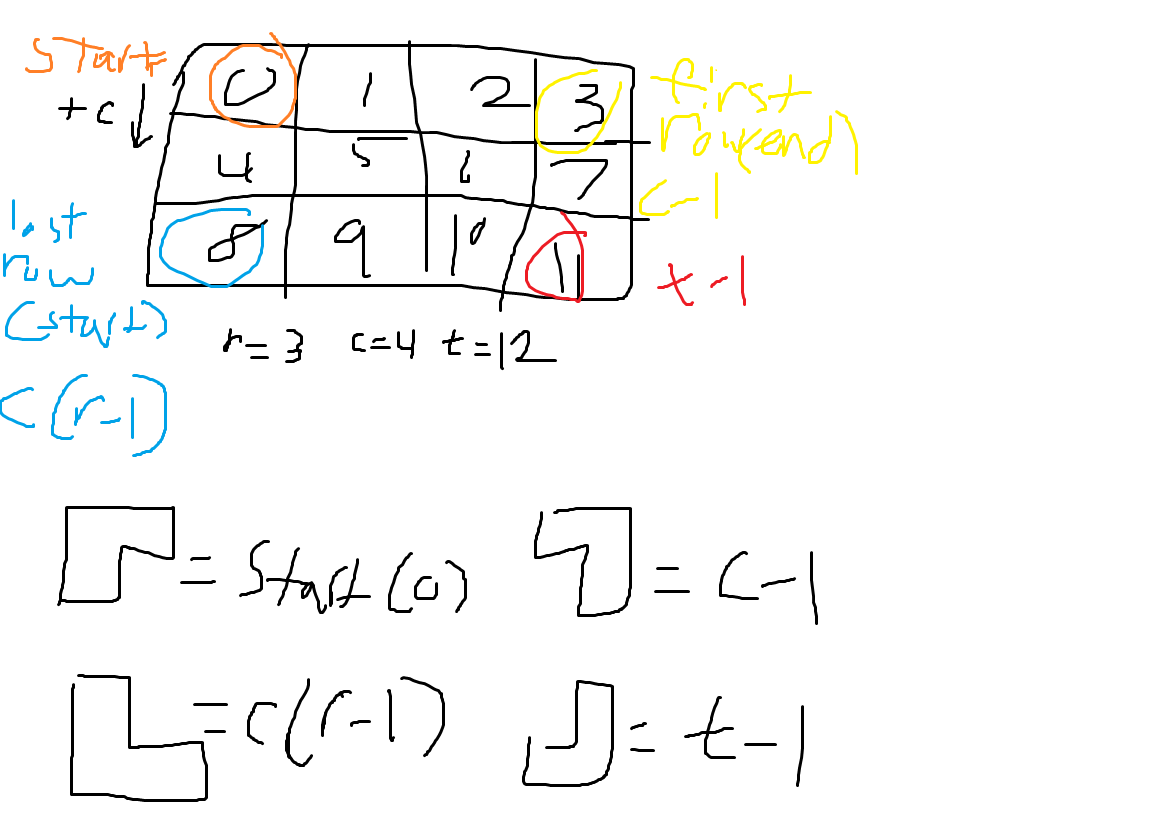 start
+c ↓
0 1 2 3
4 5 6 7
8 9 10 11
first
row(end)
c-1
last
row
(start)
c(r-1)
t-1
r=3 c=4 t=12
= start(0)
= c-1
= c(r-1)
= t-1